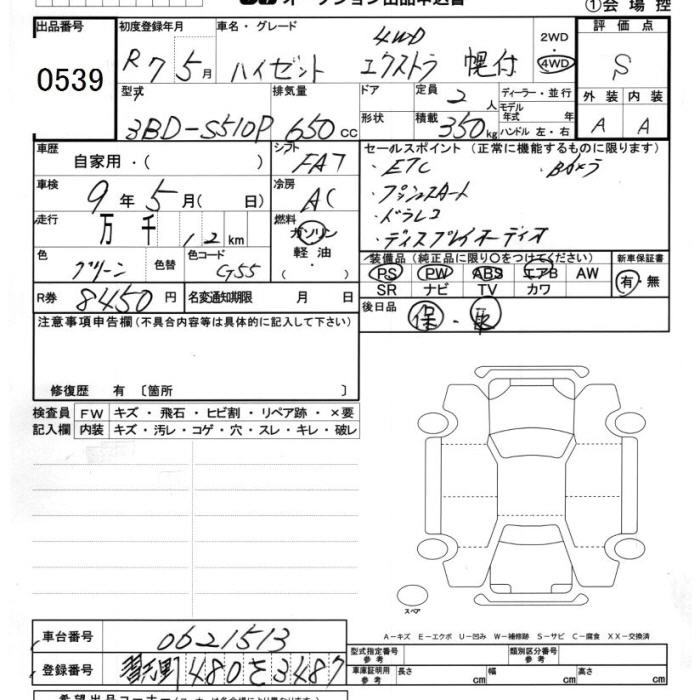 オークション出品申込書
①会場控
出品番号
0539
初度登録年月
R7 5月
車名・グレード
ハイゼット エクストラ 4WD 幌付
2WD
4WD
評価点
S
型式
3BD-S510P
排気量
650cc
ドア
形状
定員 2人
積載 350kg
ディーラー・並行
モデル年式 年
ハンドル 左・右
外装 内装
A A
車歴
自家用・( )
シフト
FA7
車検
9年5月( 日)
冷房
AC
走行
万 千 12km
燃料
ガソリン
軽油
・( )
色
グリーン
色替
色コード
G55
R券
8450円
名変通知期限 月 日
セールスポイント(正常に機能するものに限ります)
・ETC ・Bカメラ
・プッシュスタート
・ドラレコ
・ディスプレイオーディオ
装備品(純正品に限り○をつけてください)
PS PW ABS エアB AW
SR ナビ TV カワ
新車保証書
有・無
後日品
保・取
注意事項申告欄(不具合内容等は具体的に記入して下さい)
修復歴 有〔箇所 〕
検査員記入欄
FW キズ・飛石・ヒビ割・リペア跡・×要
内装 キズ・汚レ・コゲ・穴・スレ・キレ・破レ
スペア
A-キズ E-エクボ U-凹み W-補修跡 S-サビ C-腐食 XX-交換済
車台番号
0621513
登録番号
480 さ 3487
型式指定番号
参考
類別区分番号
参考
車庫証明用
参考
長さ cm 幅 cm 高さ cm
希望出品コーナー